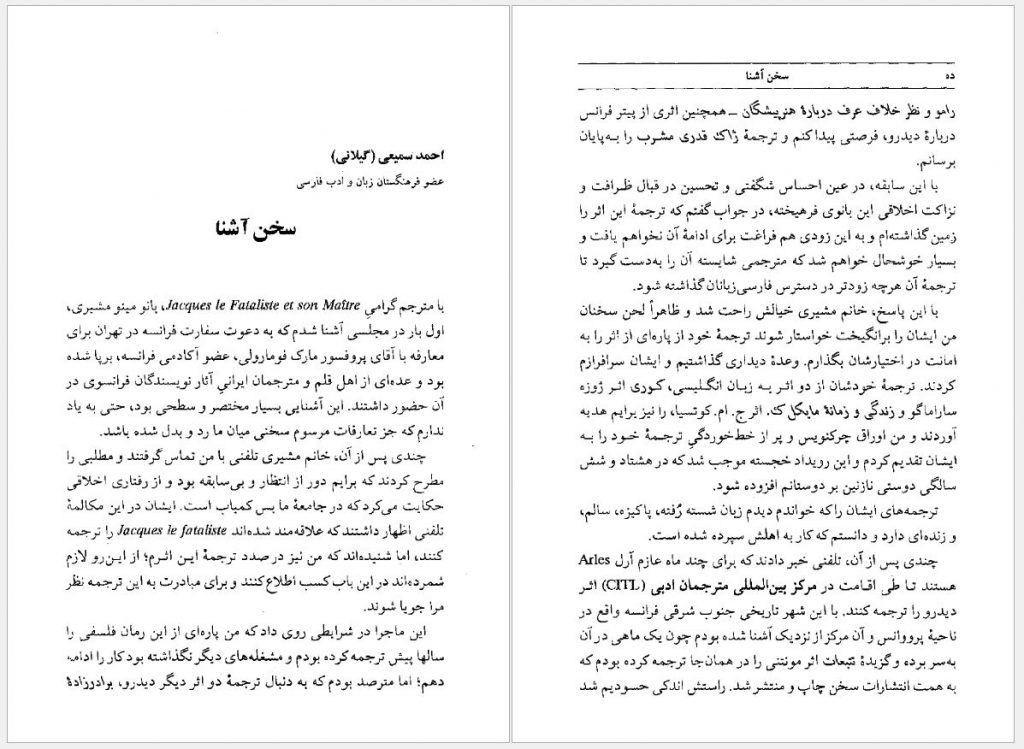 احمد سمیعی (گیلانی)
عضو فرهنگستان زبان و ادب فارسی
سخن آشنا
با مترجم گرامیِ Jacques le Fataliste et son Maître، بانو مینو مشیری،
اول بار در مجلسی آشنا شدم که به دعوت سفارت فرانسه در تهران برای
معارفه با آقای پروفسور مارک فومارولی، عضو آکادمی فرانسه، برپا شده
بود و عده‌ای از اهل قلم و مترجمان ایرانیِ آثار نویسندگان فرانسوی در
آن حضور داشتند. این آشنایی بسیار مختصر و سطحی بود، حتی به یاد
ندارم که جز تعارفات مرسوم سخنی میان ما رد و بدل شده باشد.
چندی پس از آن، خانم مشیری تلفنی با من تماس گرفتند و مطلبی را
مطرح کردند که برایم دور از انتظار و بی‌سابقه بود و از رفتاری اخلاقی
حکایت می‌کرد که در جامعهٔ ما بس کمیاب است. ایشان در این مکالمهٔ
تلفنی اظهار داشتند که علاقه‌مند شده‌اند Jacques le fataliste را ترجمه
کنند، اما شنیده‌اند که من نیز در صدد ترجمهٔ این اثرم؛ از این‌رو لازم
شمرده‌اند در این باب کسب اطلاع کنند و برای مبادرت به این ترجمه نظر
مرا جویا شوند.
این ماجرا در شرایطی روی داد که من پاره‌ای از این رمان فلسفی را
سالها پیش ترجمه کرده بودم و مشغله‌های دیگر نگذاشته بود کار را ادامه
دهم؛ اما مترصد بودم که به دنبال ترجمهٔ دو اثر دیگر دیدرو، برادرزادهٔ
ده سخن آشنا
رامو و نظر خلاف عرف دربارهٔ هنرپیشگان ــ همچنین اثری از پیتر فرانس
دربارهٔ دیدرو، فرصتی پیدا کنم و ترجمهٔ ژاک قدری مشرب را به‌پایان
برسانم.
با این سابقه، در عین احساس شگفتی و تحسین در قبال ظرافت و
نزاکت اخلاقی این بانوی فرهیخته، در جواب گفتم که ترجمهٔ این اثر را
زمین گذاشته‌ام و به این زودی هم فراغت برای ادامهٔ آن نخواهم یافت و
بسیار خوشحال خواهم شد که مترجمی شایسته آن را به‌دست گیرد تا
ترجمهٔ آن هرچه زودتر در دسترس فارسی‌زبانان گذاشته شود.
با این پاسخ، خانم مشیری خیالش راحت شد و ظاهراً لحن سخنان
من ایشان را برانگیخت خواستار شوند ترجمهٔ خود از پاره‌ای از اثر را به
امانت در اختیارشان بگذارم. وعدهٔ دیداری گذاشتیم و ایشان سرافرازم
کردند. ترجمهٔ خودشان از دو اثر به زبان انگلیسی، کوری اثر ژوزه
ساراماگو و زندگی و زمانهٔ مایکل ک. اثر ج. ام. کوتسیا، را نیز برایم هدیه
آوردند و من اوراق چرکنویس و پر از خط‌خوردگیِ ترجمهٔ خود را به
ایشان تقدیم کردم و این رویداد خجسته موجب شد که در هشتاد و شش
سالگی دوستی نازنین بر دوستانم افزوده شود.
ترجمه‌های ایشان را که خواندم دیدم زبان شسته رُفته، پاکیزه، سالم،
و زنده‌ای دارد و دانستم که کار به اهلش سپرده شده است.
چندی پس از آن، تلفنی خبر دادند که برای چند ماه عازم آرل Arles
هستند تا طی اقامت در مرکز بین‌المللی مترجمان ادبی (CITL) اثر
دیدرو را ترجمه کنند. با این شهر تاریخی جنوب شرقی فرانسه واقع در
ناحیهٔ پرووانس و آن مرکز از نزدیک آشنا شده بودم چون یک ماهی در آن
به‌سر برده و گزیدهٔ تتبعات اثر مونتنی را در همان‌جا ترجمه کرده بودم که
به همت انتشارات سخن چاپ و منتشر شد. راستش اندکی حسودیم شد